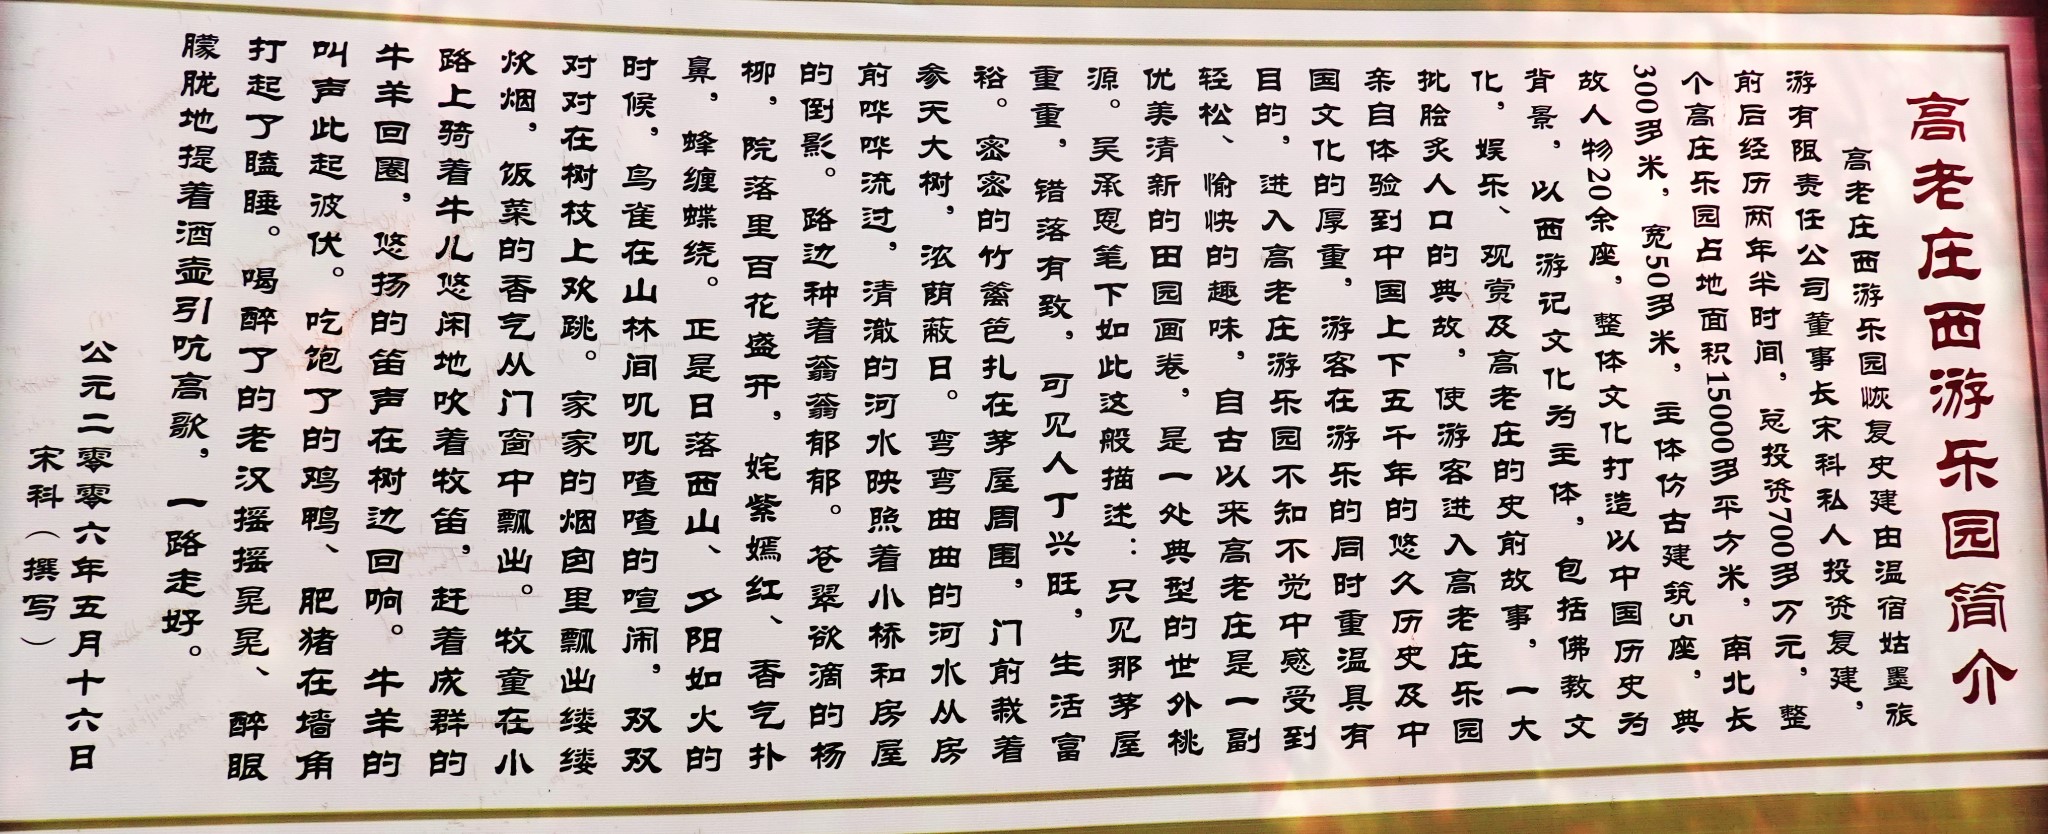 高老庄西游乐园简介
高老庄西游乐园恢复史建由温宿姑墨旅
游有限责任公司董事长宋科私人投资复建，
前后经历两年半时间，总投资700多万元，整
个高庄乐园占地面积15000多平方米，南北长
300多米，宽50多米，主体仿古建筑5座，典
故人物20余座，整体文化打造以中国历史为
背景，以西游记文化为主体，包括佛教文
化，娱乐、观赏及高老庄的史前故事，一大
批脍炙人口的典故，使游客进入高老庄乐园
亲自体验到中国上下五千年的悠久历史及中
国文化的厚重，游客在游乐的同时重温具有
目的，进入高老庄游乐园不知不觉中感受到
轻松、愉快的趣味，自古以来高老庄是一副
优美清新的田园画卷，是一处典型的世外桃
源。吴承恩笔下如此这般描述：只见那茅屋
重重，错落有致，可见人丁兴旺，生活富
裕。密密的竹篱笆扎在茅屋周围，门前栽着
参天大树，浓荫蔽日。弯弯曲曲的河水从房
前哗哗流过，清澈的河水映照着小桥和房屋
的倒影。路边种着蓊蓊郁郁。苍翠欲滴的杨
柳，院落里百花盛开，姹紫嫣红、香气扑
鼻，蜂缠蝶绕。正是日落西山、夕阳如火的
时候，鸟雀在山林间叽叽喳喳的喧闹，双双
对对在树枝上欢跳。家家的烟囱里飘出缕缕
炊烟，饭菜的香气从门窗中飘出。牧童在小
路上骑着牛儿悠闲地吹着牧笛，赶着成群的
牛羊回圈，悠扬的笛声在树边回响。牛羊的
叫声此起波伏。吃饱了的鸡鸭、肥猪在墙角
打起了瞌睡。喝醉了的老汉摇摇晃晃、醉眼
朦胧地提着酒壶引吭高歌，一路走好。
公元二零零六年五月十六日
宋科（撰写）